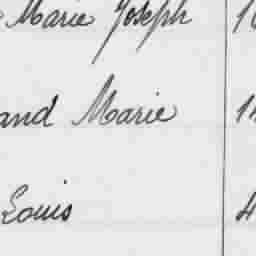 Marie Joseph 1
and Marie 1
Louis 4